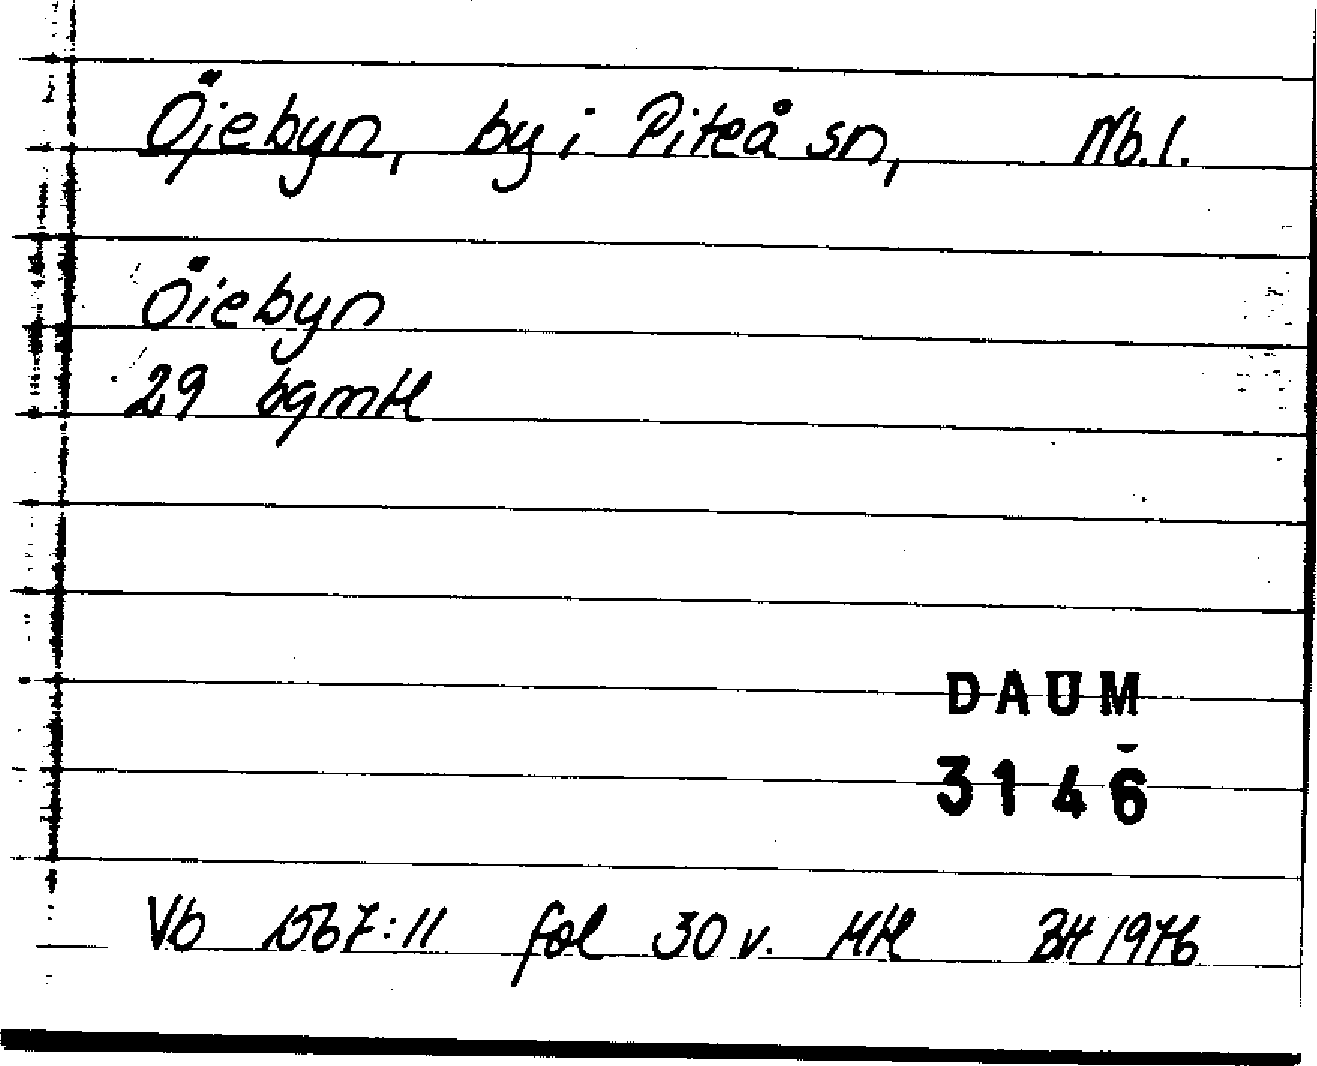 Öjebyn, by i Piteå sn, Nb. l.
Öiebyn
29 bgmtl
DAUM
3146
Vb 1567:11 fol 30 v. HH 1976